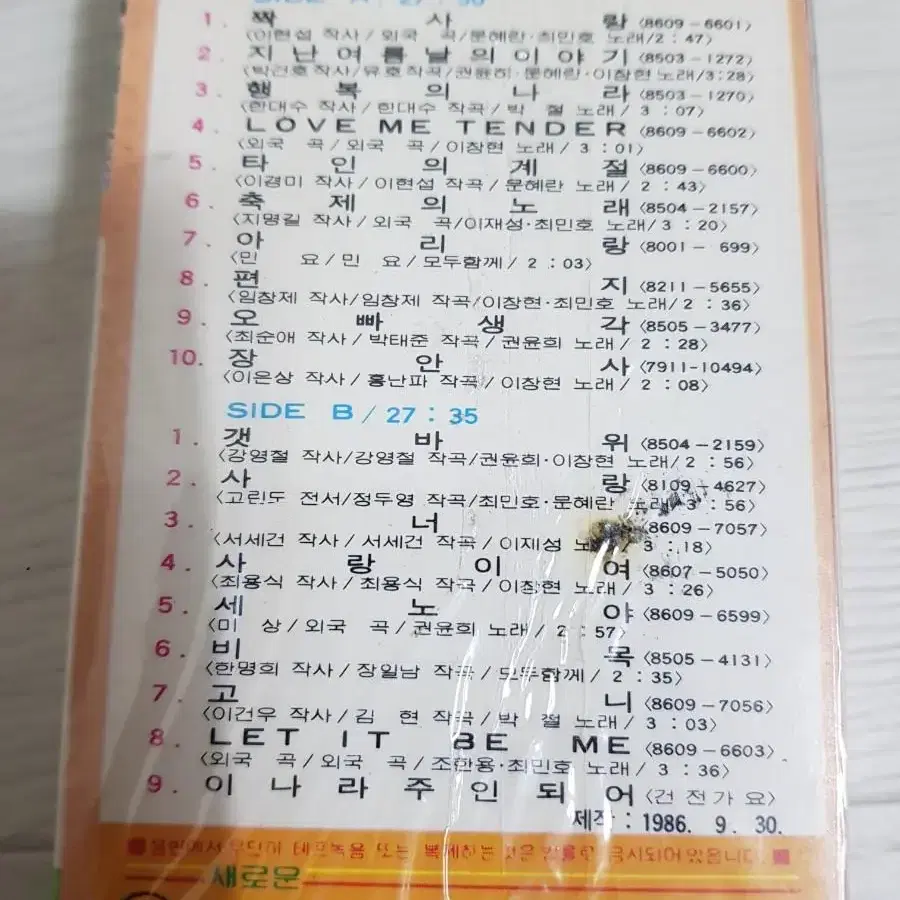 SIDE A / 27 : 30
1. 짝사랑 〈8609-6601〉
〈이현섭 작사/외국 곡/문혜란·최민호 노래/2 : 47〉
2. 지난여름날의이야기 〈8503-1272〉
〈박건호작사/유호작곡/권윤희·문혜란·이창현노래/3:28〉
3. 행복의나라 〈8503-1270〉
〈한대수 작사/한대수 작곡/박 철 노래/ 3 : 07〉
4. LOVE ME TENDER 〈8609-6602〉
〈외국 곡/외국 곡/이창현 노래/ 3 : 01〉
5. 타인의계절 〈8609-6600〉
〈이경미 작사/이현섭 작곡/문혜란 노래/ 2 : 43〉
6. 축제의노래 〈8504-2157〉
〈지명길 작사/외국 곡/이재성·최민호 노래/3 : 20〉
7. 아리랑 〈8001- 699〉
〈민 요/민 요/모두함께/ 2 : 03〉
8. 편지 〈8211-5655〉
〈임창제 작사/임창제 작곡/이창현·최민호 노래/ 2 : 36〉
9. 오빠생각 〈8505-3477〉
〈최순애 작사/ 박태준 작곡/권윤희 노래/ 2 : 28〉
10. 장안사 〈7911-10494〉
〈이은상 작사/ 홍난파 작곡/이창현 노래/ 2 : 08〉
SIDE B / 27 : 35
1. 갯바위 〈8504-2159〉
〈강영철 작사/강영철 작곡/권윤희·이창현 노래/2 : 56〉
2. 사랑 〈8109-4627〉
〈고린도 전서/정두영 작곡/최민호·문혜란 노래/3 : 56〉
3. 너 〈8609-7057〉
〈서세건 작사/ 서세건 작곡/이재성 노래/ 3 : 18〉
4. 사랑이여 〈8607-5050〉
〈최용식 작사/ 최용식 작곡/ 이창현 노래/ 3 : 26〉
5. 세노야 〈8609-6599〉
〈미 상/외국 곡/권윤희 노래/ 2 : 57〉
6. 비목 〈8505-4131〉
〈한명희 작사/ 장일남 작곡/ 모두함께/ 2 : 35〉
7. 고니 〈8609-7056〉
〈이건우 작사/김 현 작곡/박 철 노래/ 3 : 03〉
8. LET IT BE ME 〈8609-6603〉
〈외국 곡/외국 곡/조한용·최민호 노래/ 3 : 36〉
9. 이나라주인되어 〈건전가요〉
제작 : 1986. 9. 30.
새로운